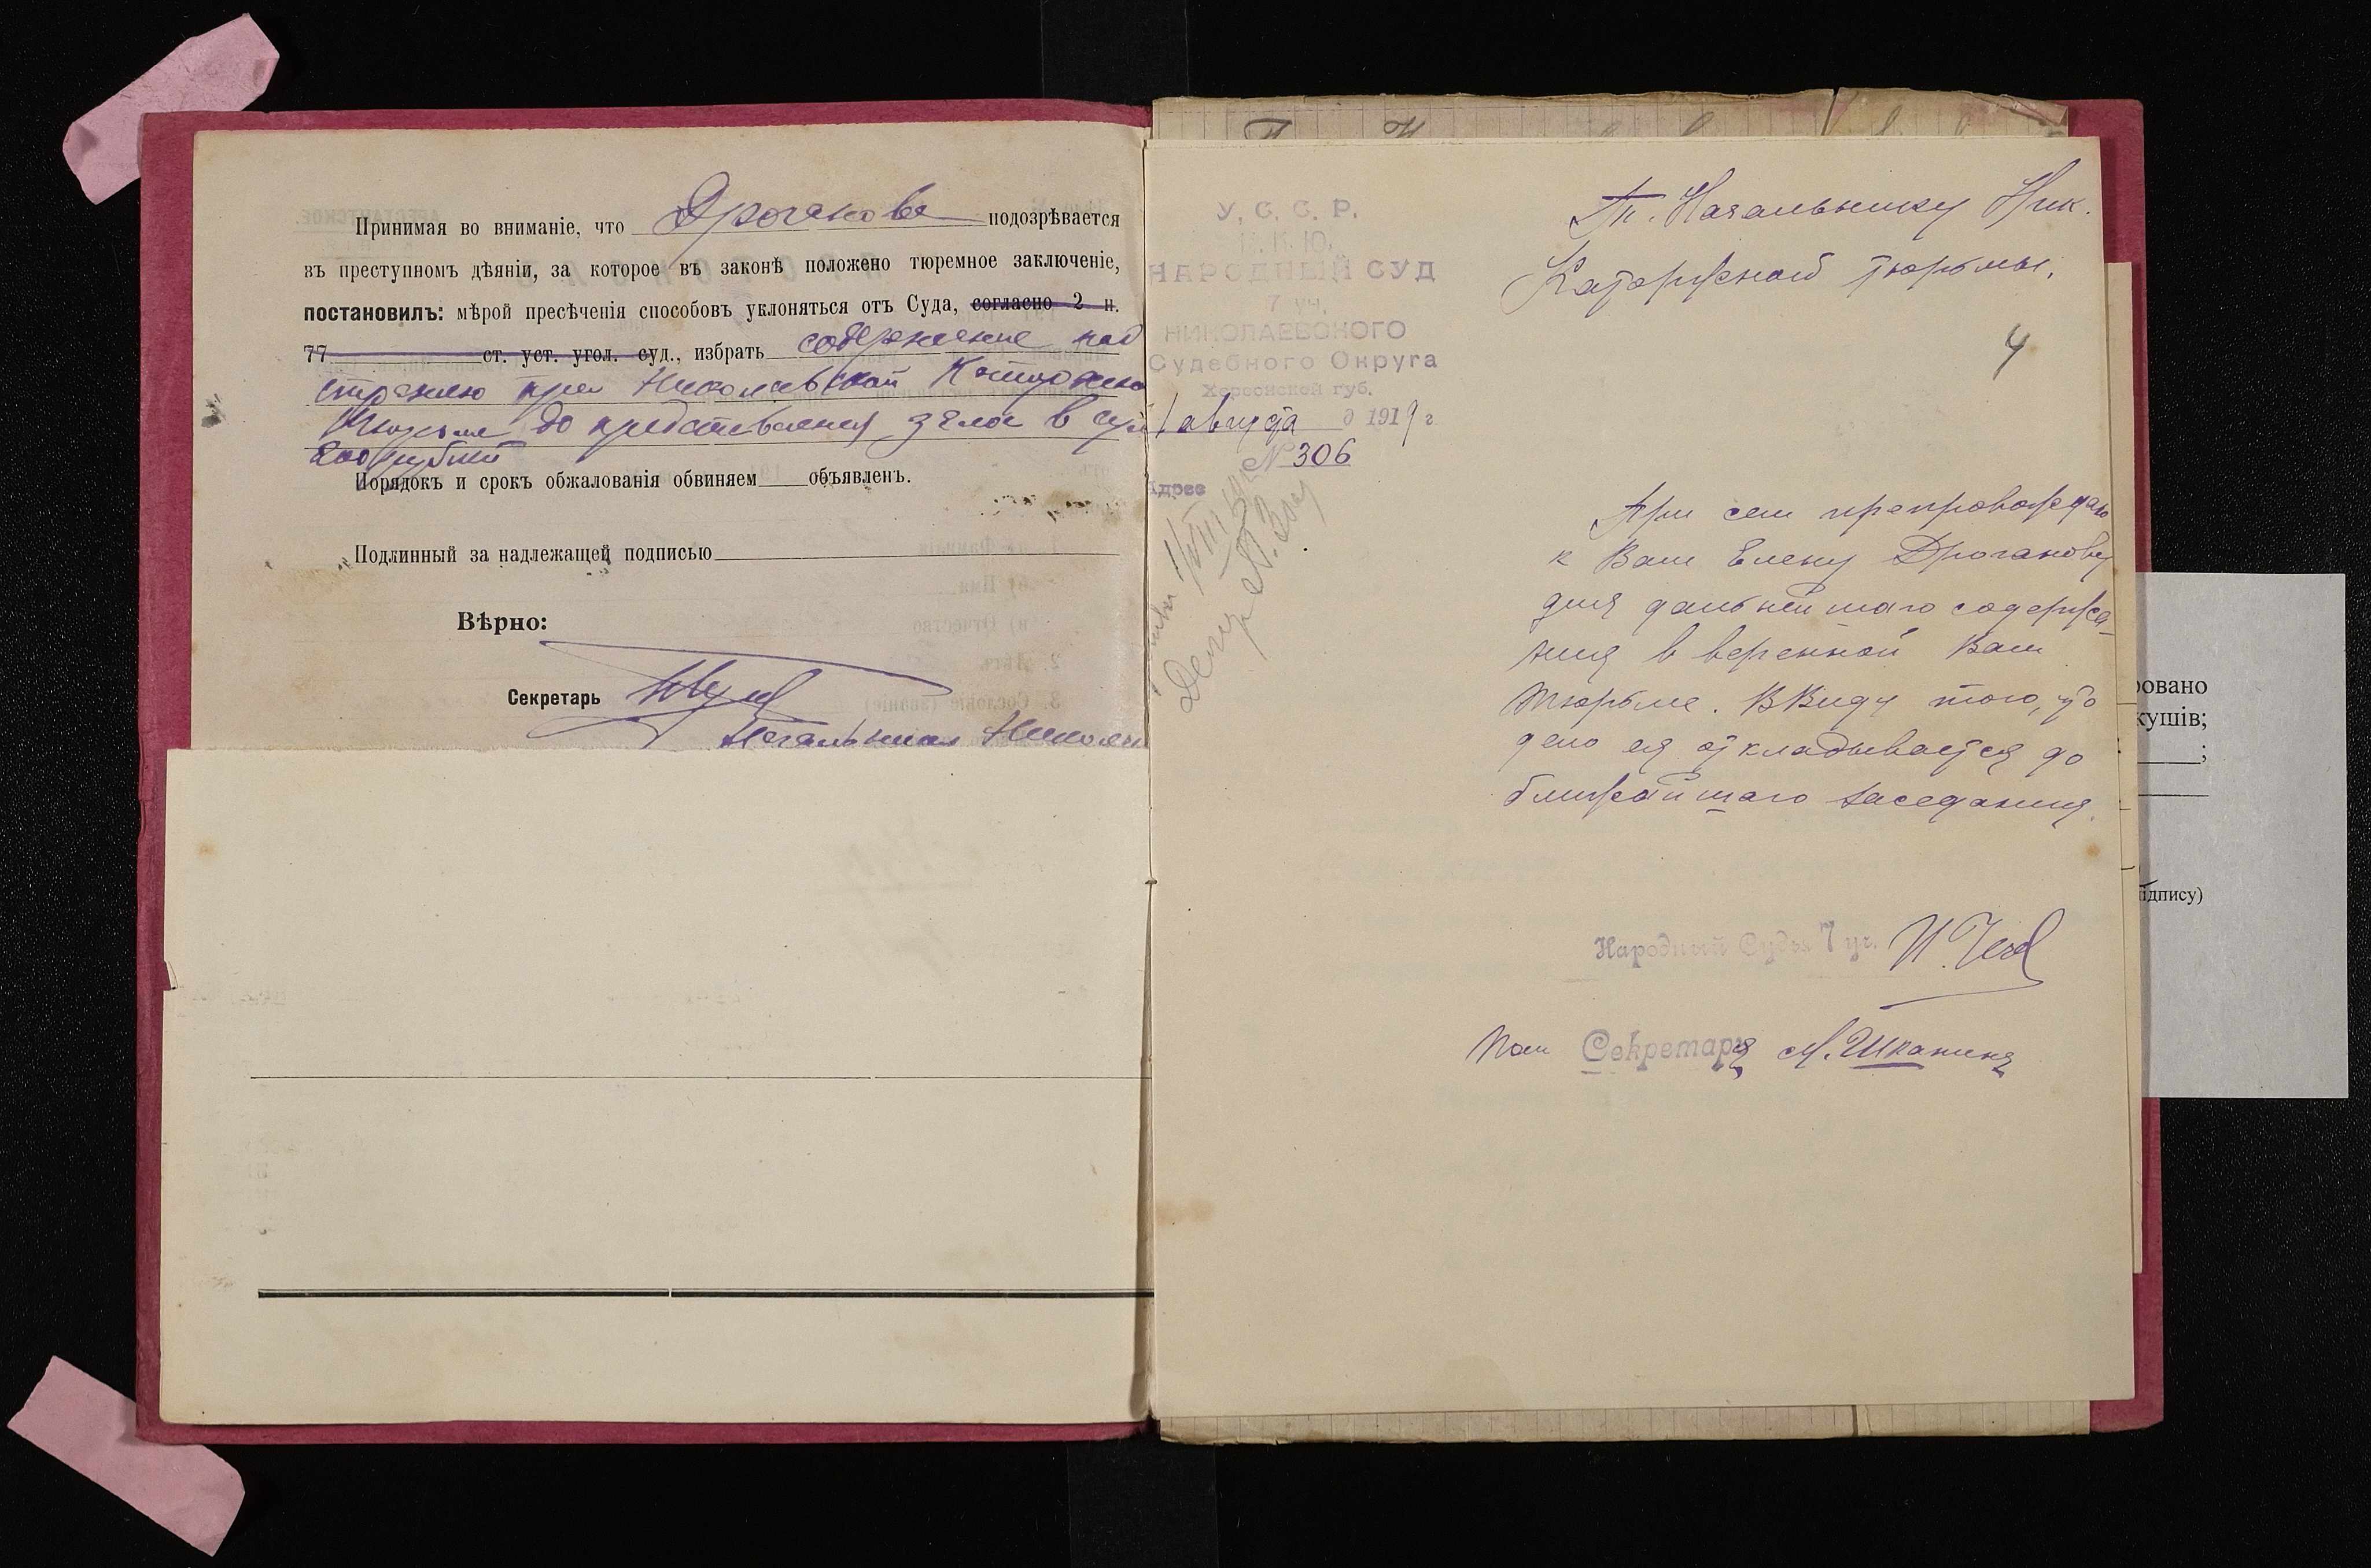 Принимая во вниманіе, что Дроганова подозрѣвается
въ преступномъ дѣяніи, за которое въ законѣ положено тюремное заключеніе,
постановилъ: мѣрой пресѣченія способовъ уклоняться отъ Суда, согласно 2 п.
77 ст. уст. угол. суд., избрать содержание под
стражею при Николаевской Каторжно
Тюрьме до представления залога в сум
рублей
Порядокъ и срокъ обжалованія обвиняем объявленъ.
Подлинный за надлежащей подписью
Вѣрно:
Секретарь
Начальник Николаев
У. С. С. Р.
Н. К. Ю.
НАРОДНЫЙ СУД
7 уч.
НИКОЛАЕВСКОГО
Судебного Округа
Херсонской губ.
1 августа д 1919 г.
№ 306
Адрес
Тт. Начальнику Ник.
Каторжной тюрьмы.
4
При сем препровождаю
к Вам Елену Дроганову
для дальнейшаго содержа-
ния в веренной Вам
тюрьме. В Виду того, что
дело ея откладывается до
ближайшаго заседания.
Народный Судья 7 уч.
Пом Секретаря М. Шканина
ровано
кушів;
;
ідпису)